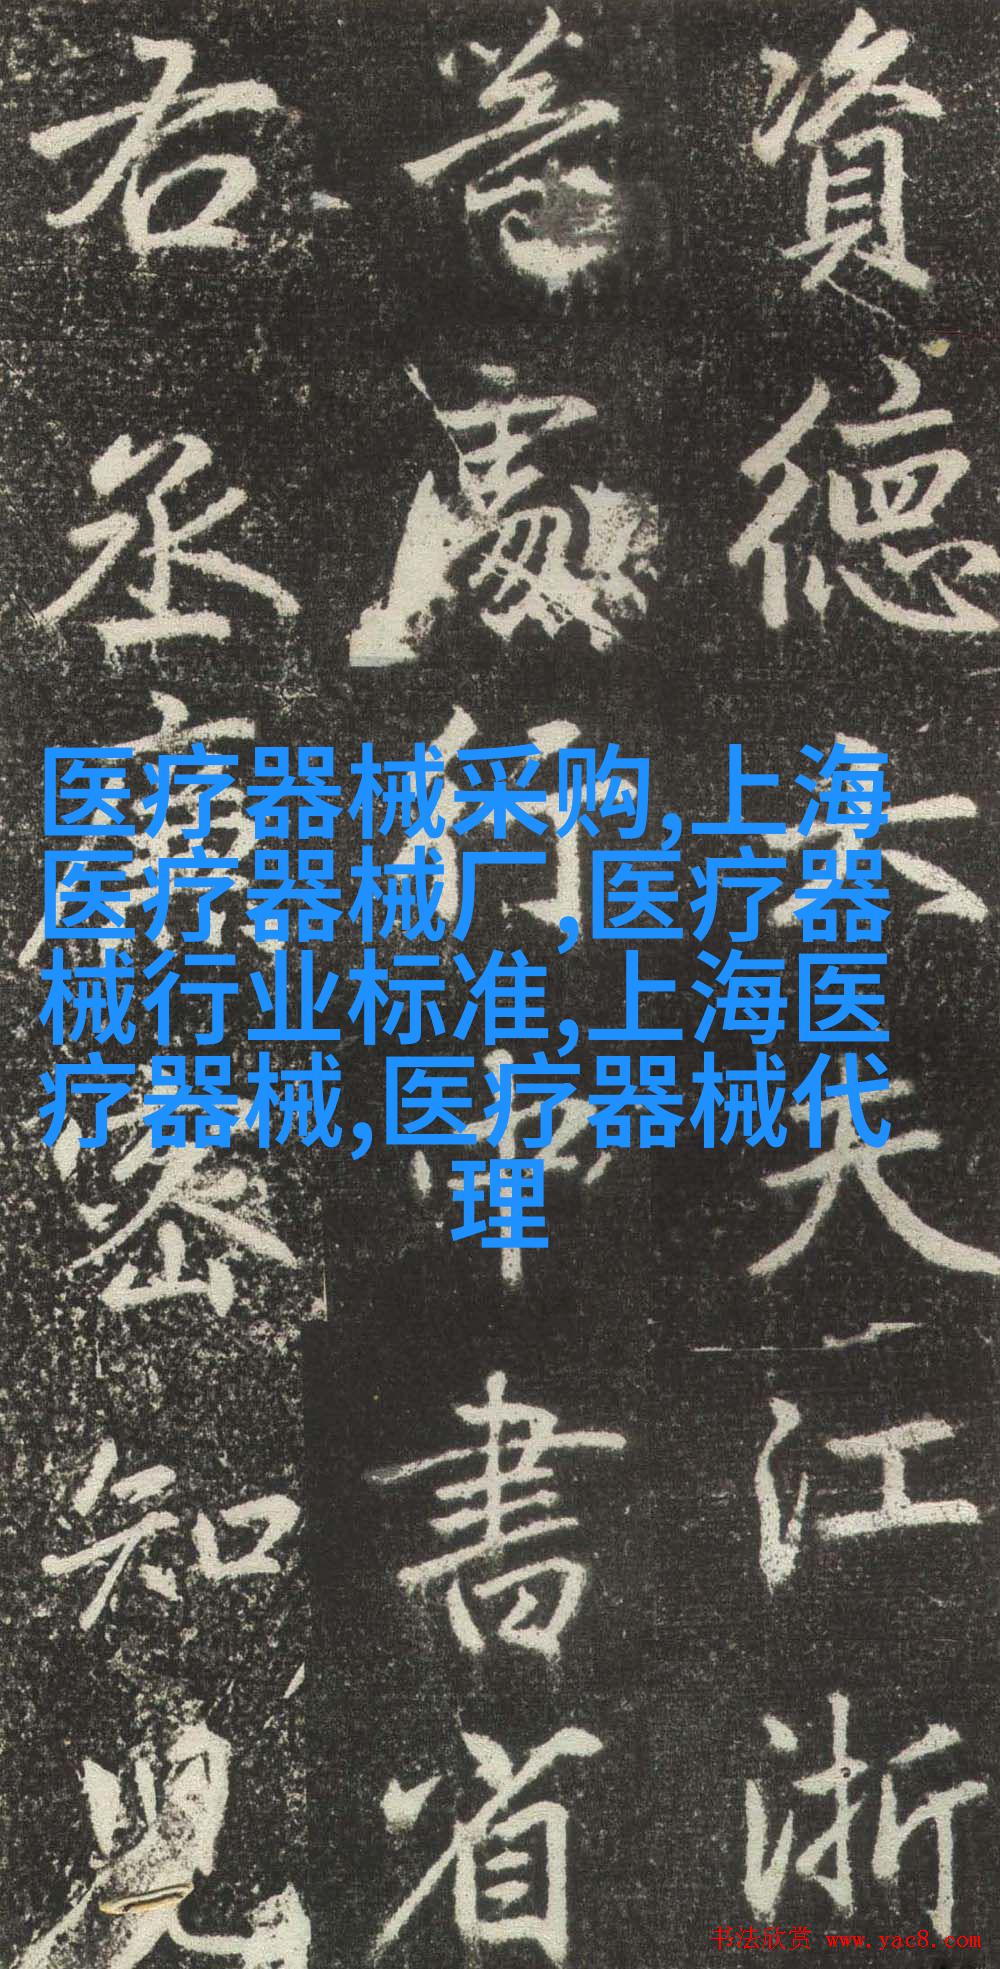 資德大夫江浙
等處行中書省
右丞廉密知兒
医疗器械采购,上海
医疗器械厂,医疗器
械行业标准,上海医
疗器械,医疗器械代
理
书法欣赏 www.yac8.com